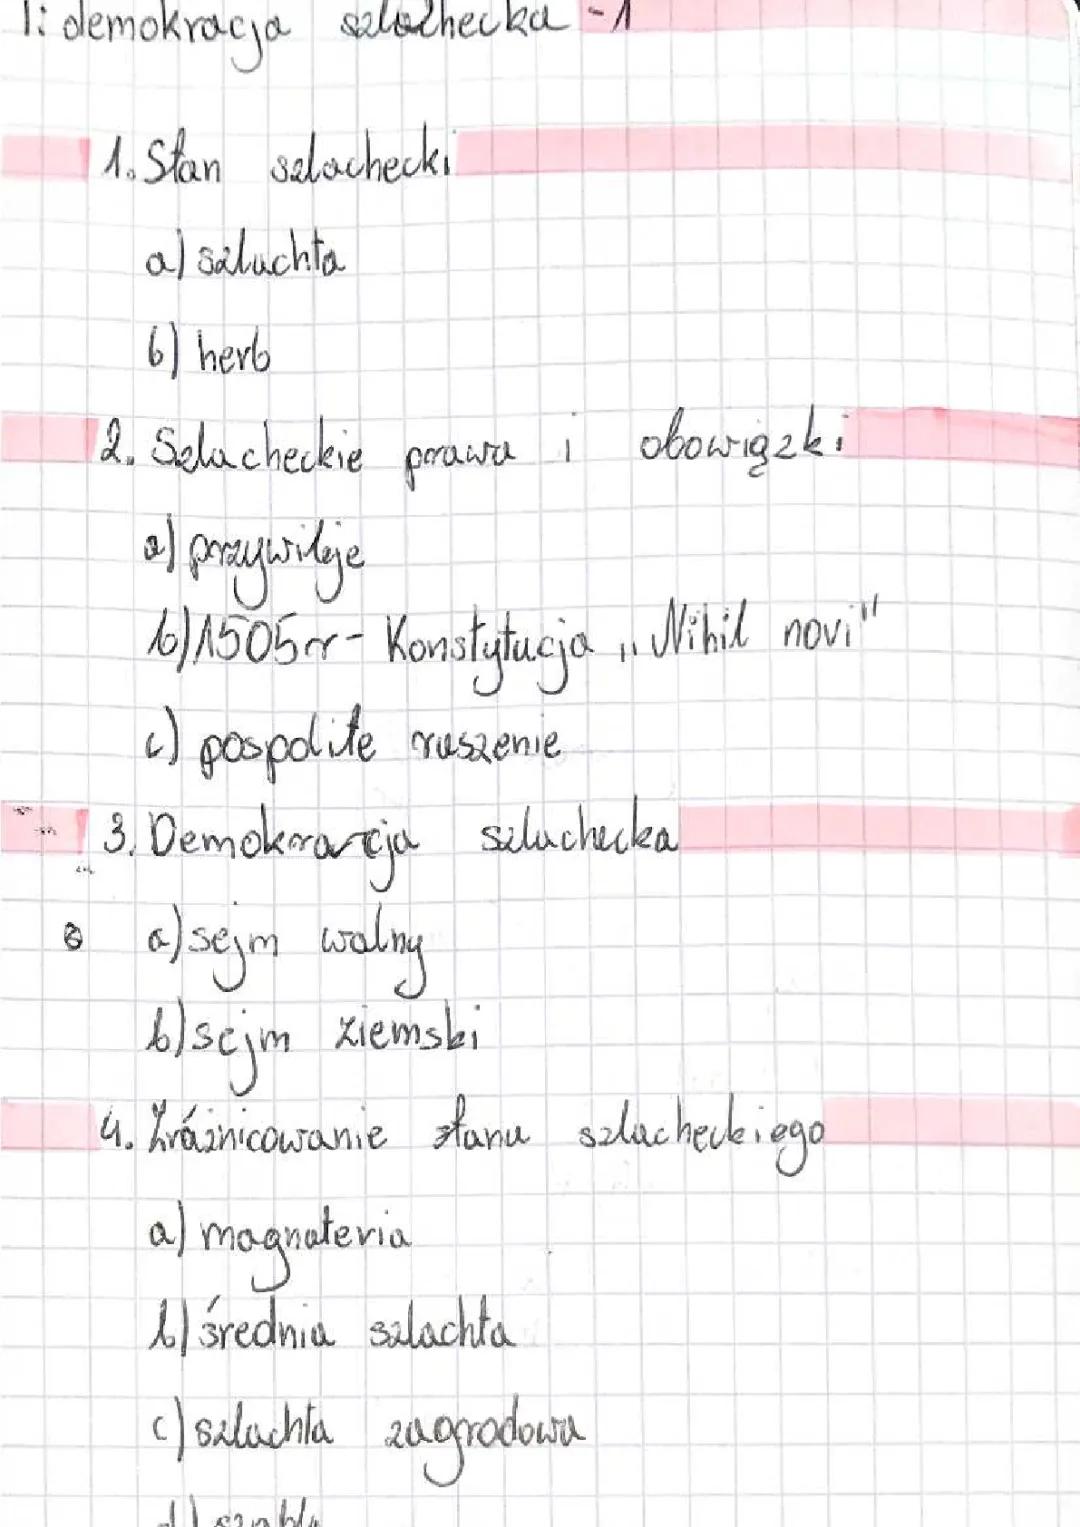 T: demokracja szlachecka - 1
1. Stan szlachecki
a) szlachta
b) herb
2. Szlacheckie prawa i obowiązki
a) przywileje
b) 1505r - Konstytucja „Nihil novi"
c) pospolite ruszenie
3. Demokracja szlachecka
a) sejm walny
b) sejm ziemski
4. Zróżnicowanie stanu szlacheckiego
a) magnateria
b) średnia szlachta
c) szlachta zagrodowa
d)